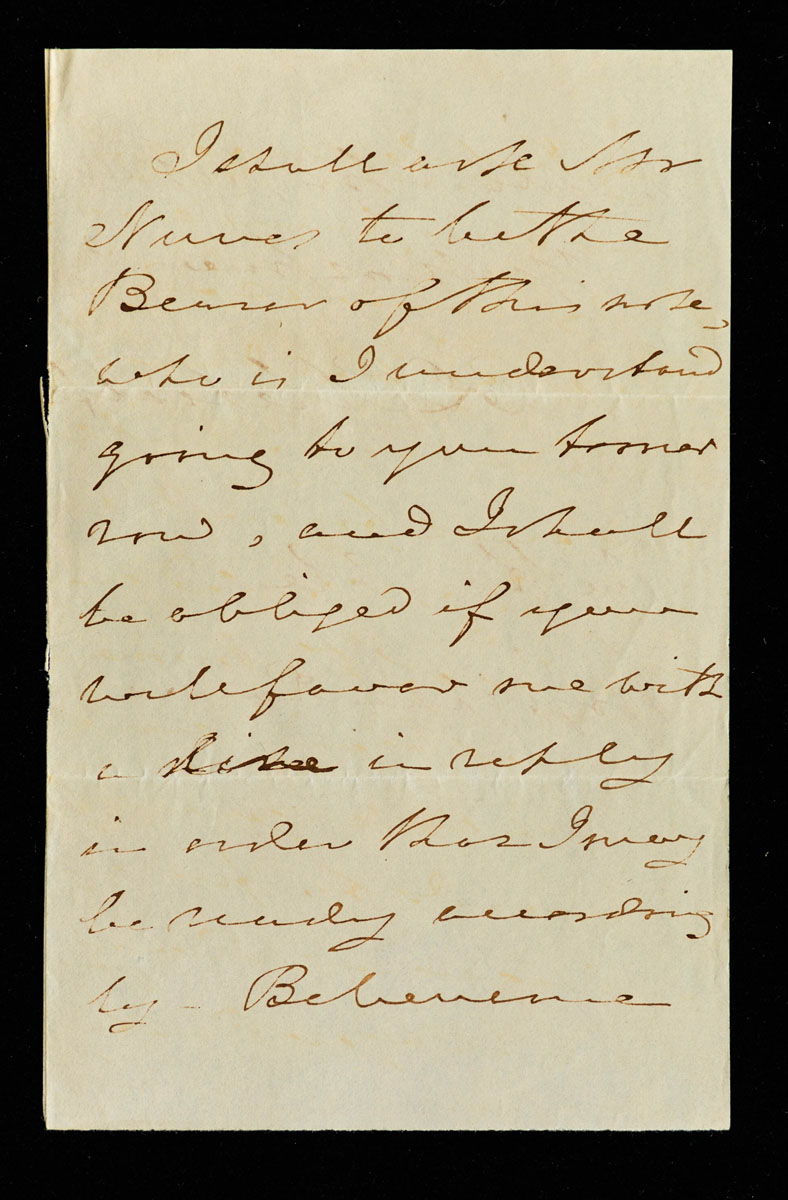 I shall ask Mr
Nunes to be the
Bearer of this note,
who is I understand
going to you tomor
row, and I shall
be obliged if you
will favor me with
a line in reply
in order that I may
be ready according
ly - Believe me